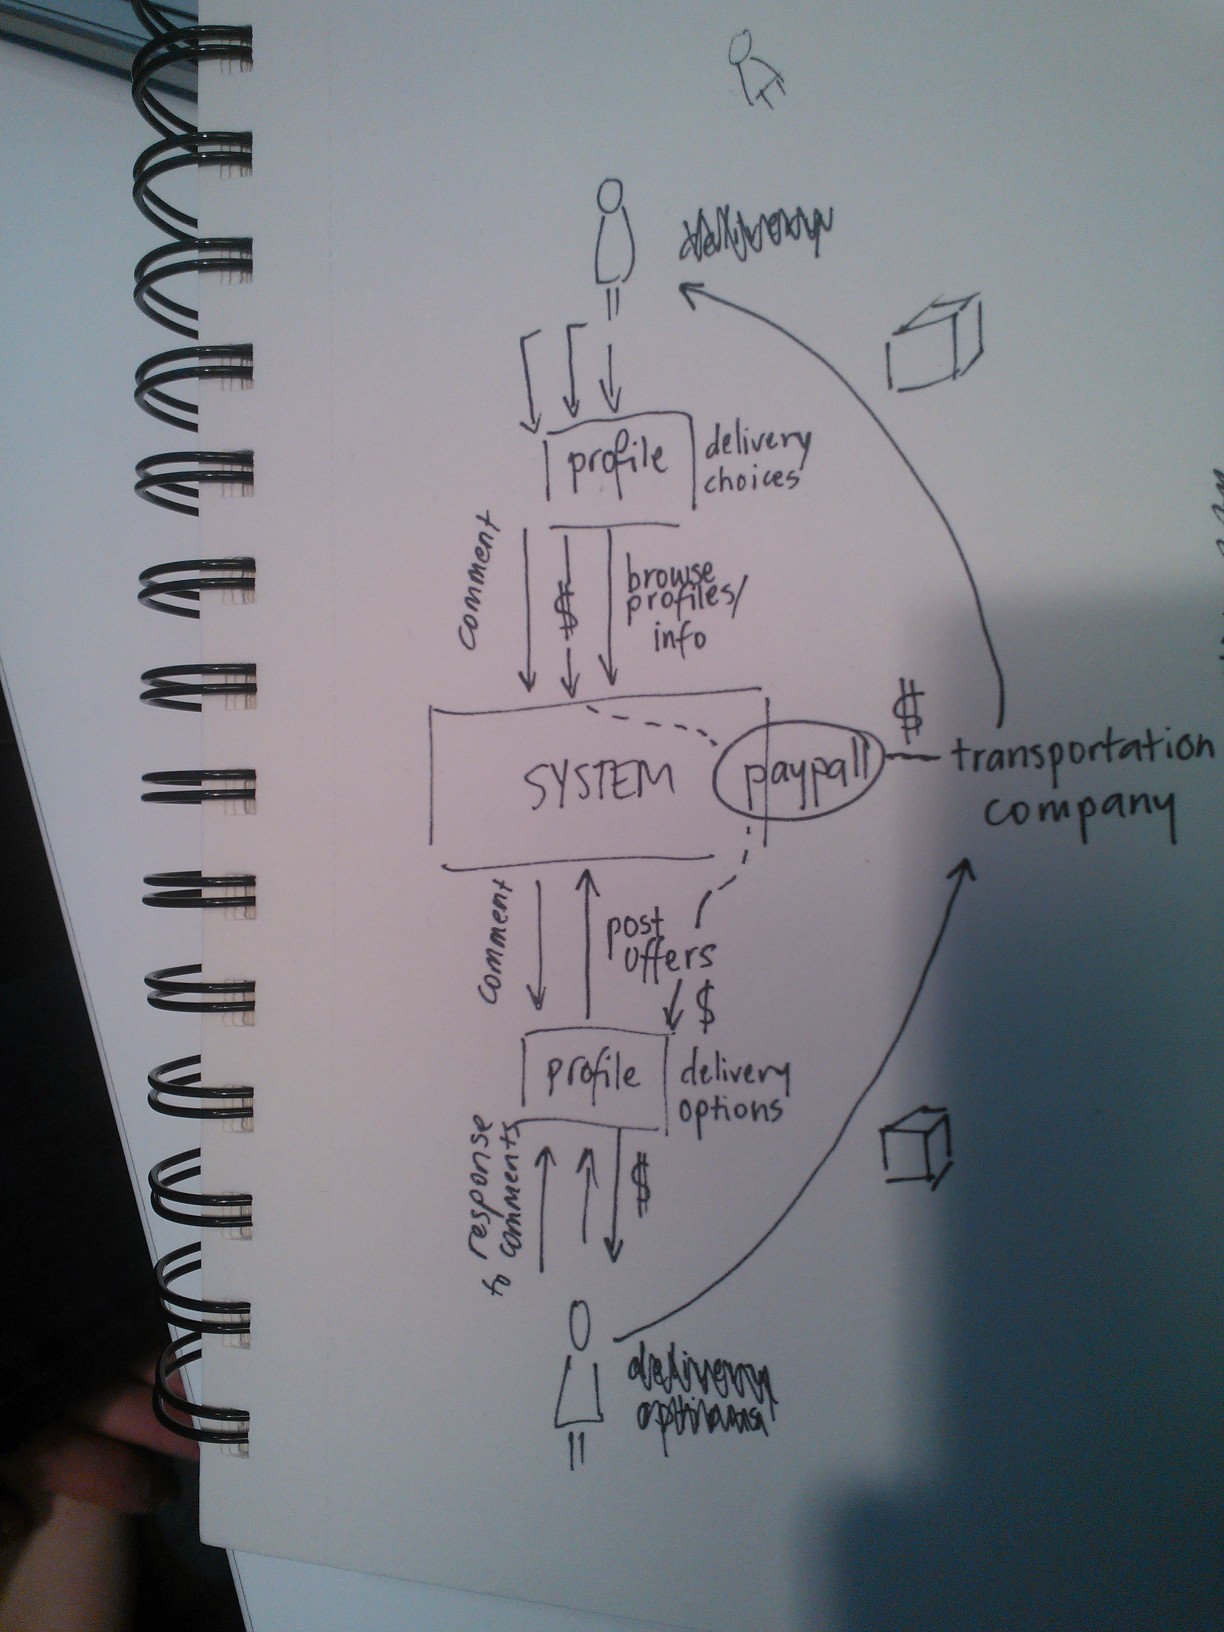 profile
delivery
choices
comment
$
browse
profiles/
info
SYSTEM
paypall
$
transportation
company
comment
post
offers
$
profile
delivery
options
response
to comments
$